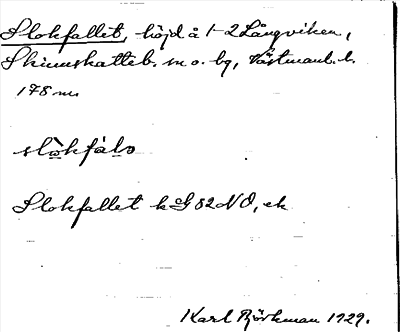 Slokfallet, höjd å 1-2 Långviken,
Skinnskatteb. sn o. bg, Västmanl. l.
178 m
slòkfàlo
Slokfallet k G 82 NO, ek
Karl Björkman 1929.